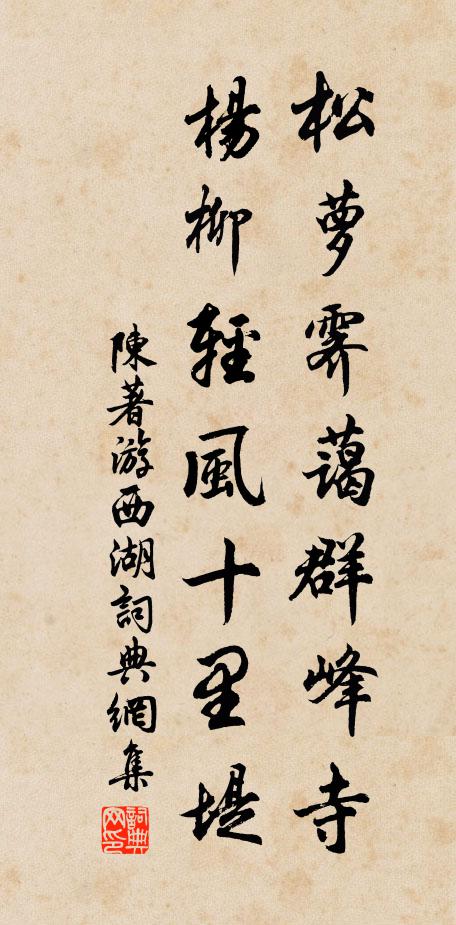 松萝霁蔼群峰寺
楊柳輕風十里堤
陳著游西湖詞典網集
詞典
网印